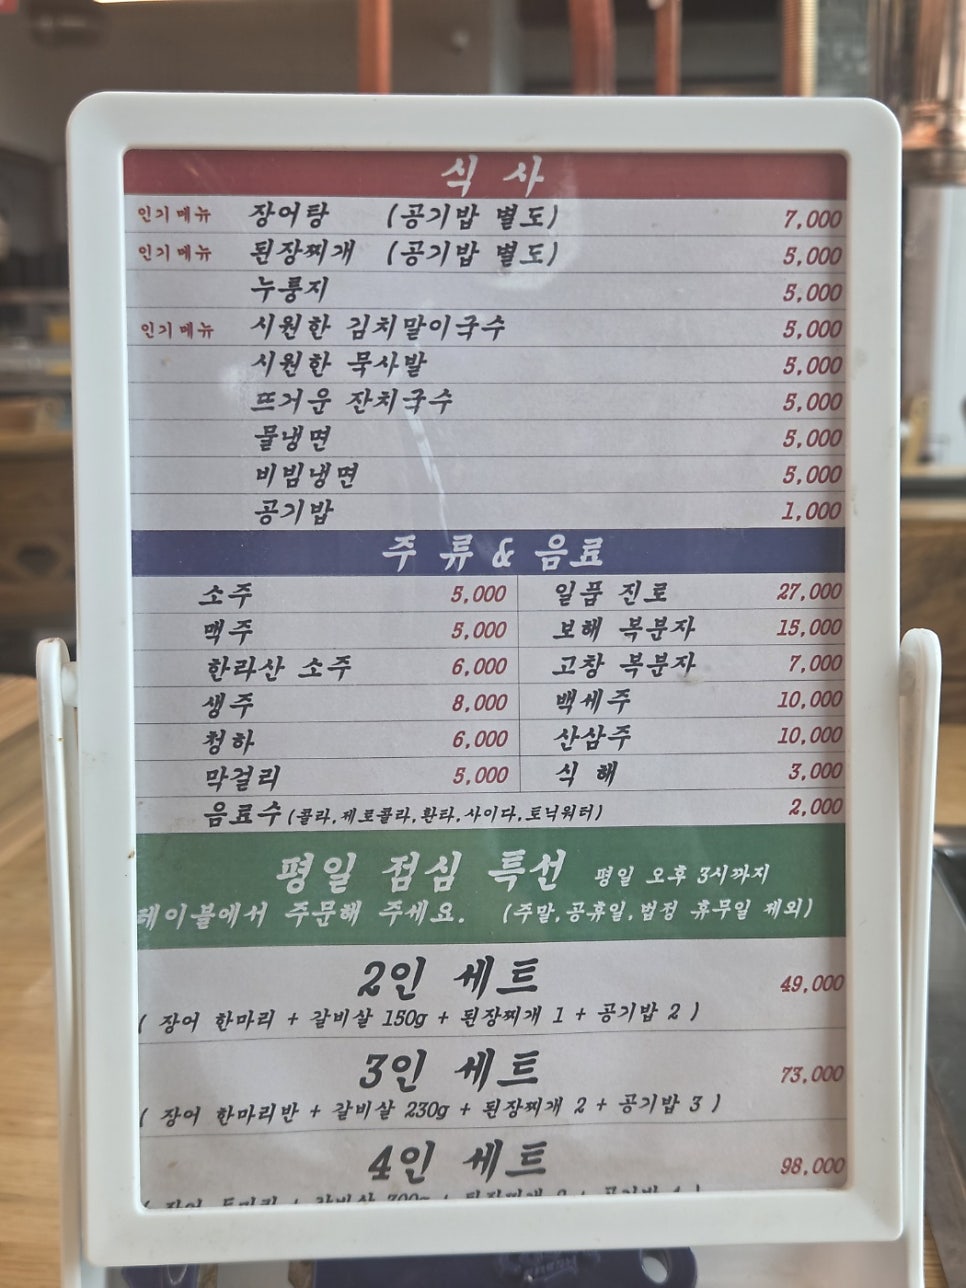 식 사
인기메뉴 장어탕 (공기밥 별도) 7,000
인기메뉴 된장찌개 (공기밥 별도) 5,000
누룽지 5,000
인기메뉴 시원한 김치말이국수 5,000
시원한 묵사발 5,000
뜨거운 잔치국수 5,000
물냉면 5,000
비빔냉면 5,000
공기밥 1,000
주 류 & 음료
소주 5,000 일품 진로 27,000
맥주 5,000 보해 복분자 15,000
한라산 소주 6,000 고창 복분자 7,000
생주 8,000 백세주 10,000
청하 6,000 산삼주 10,000
막걸리 5,000 식 해 3,000
음료수 (콜라,제로콜라,환타,사이다,토닉워터) 2,000
평일 점심 특선 평일 오후 3시까지
테이블에서 주문해 주세요. (주말,공휴일,법정 휴무일 제외)
2인 세트 49,000
( 장어 한마리 + 갈비살 150g + 된장찌개 1 + 공기밥 2 )
3인 세트 73,000
( 장어 한마리반 + 갈비살 230g + 된장찌개 2 + 공기밥 3 )
4인 세트 98,000